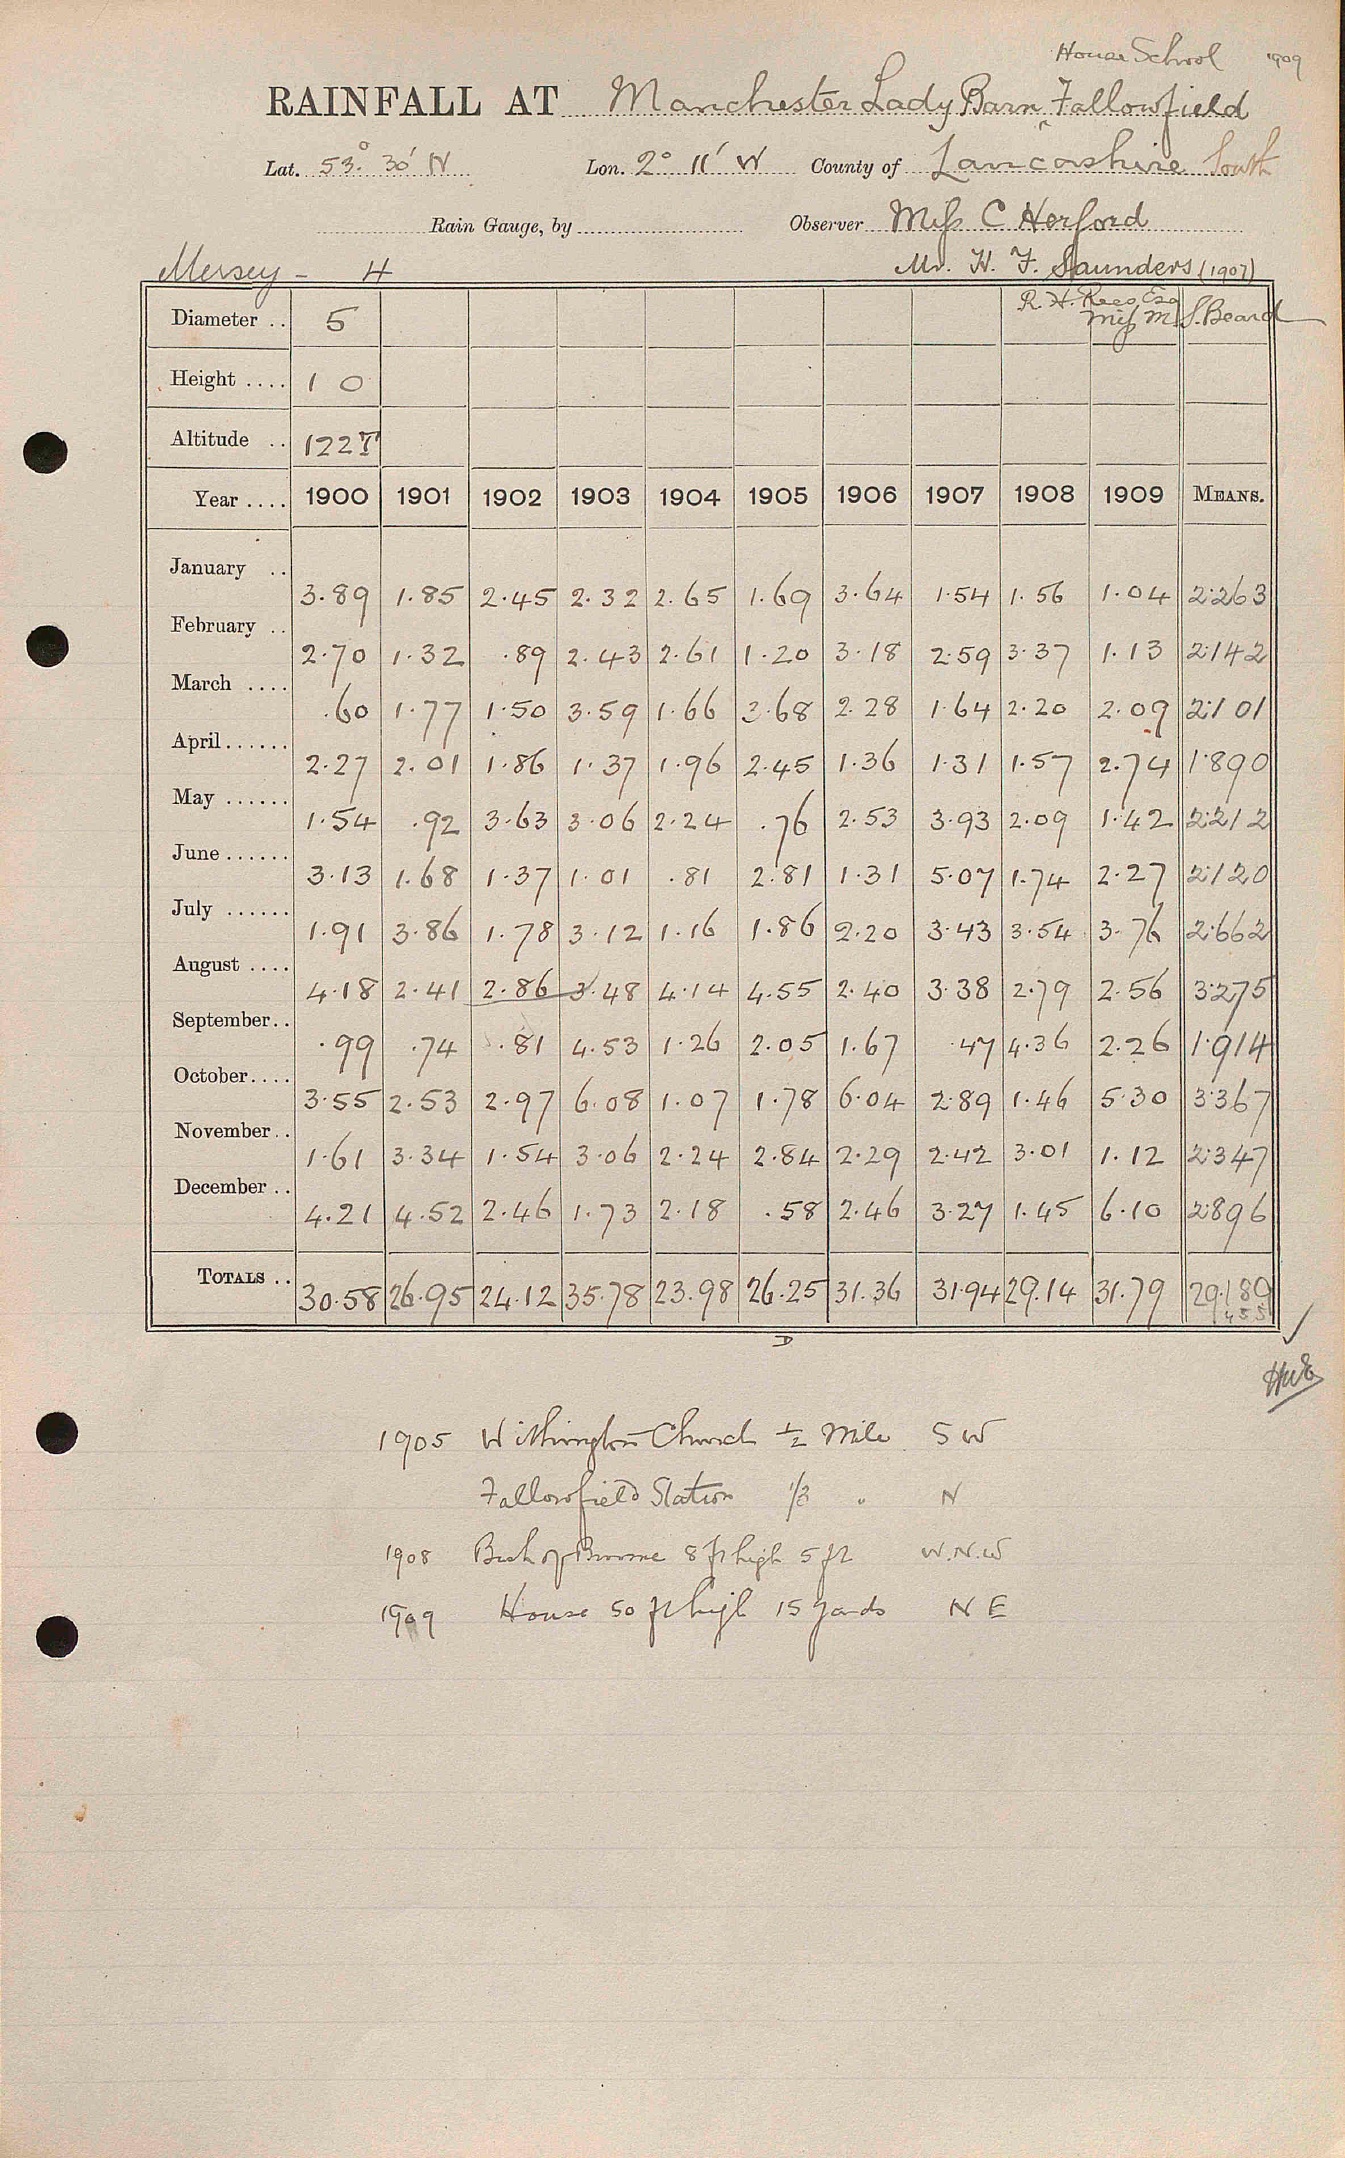 House School 1909
RAINFALL AT Manchester Lady Barn ‸ Fallowfield
Lat. 53° 30' N Lon. 2° 11' W County of Lancashire South
Rain Gauge, by Observer Miss C Herford
Mersey - 4 Mr. H. F. Saunders (1907)
R. H. Rees Esq
Miss M. S. Beard
Diameter .. 5
Height .... 1 0
Altitude .. 122T
Year .... 1900 1901 1902 1903 1904 1905 1906 1907 1908 1909 MEANS.
January .. 3.89 1.85 2.45 2.32 2.65 1.69 3.64 1.54 1.56 1.04 2.263
February .. 2.70 1.32 .89 2.43 2.61 1.20 3.18 2.59 3.37 1.13 2.142
March .... .60 1.77 1.50 3.59 1.66 3.68 2.28 1.64 2.20 2.09 2.101
April...... 2.27 2.01 1.86 1.37 1.96 2.45 1.36 1.31 1.57 2.74 1.890
May ...... 1.54 .92 3.63 3.06 2.24 .76 2.53 3.93 2.09 1.42 2.212
June...... 3.13 1.68 1.37 1.01 .81 2.81 1.31 5.07 1.74 2.27 2.120
July ...... 1.91 3.86 1.78 3.12 1.16 1.86 2.20 3.43 3.54 3.76 2.662
August .... 4.18 2.41 2.86 3.48 4.14 4.55 2.40 3.38 2.79 2.56 3.275
September.. .99 .74 .81 4.53 1.26 2.05 1.67 .47 4.36 2.26 1.914
October.... 3.55 2.53 2.97 6.08 1.07 1.78 6.04 2.89 1.46 5.30 3.367
November.. 1.61 3.34 1.54 3.06 2.24 2.84 2.29 2.42 3.01 1.12 2.347
December .. 4.21 4.52 2.46 1.73 2.18 .58 2.46 3.27 1.45 6.10 2.896
TOTALS .. 30.58 26.95 24.12 35.78 23.98 26.25 31.36 31.94 29.14 31.79 29.189
455
D
1905 Withington Church ½ Mile SW
Fallowfield Station 1/3 " N
1908 Bush of Broome 8 ft high 5 ft W.N.W
1909 House 50 ft high 15 yards N E